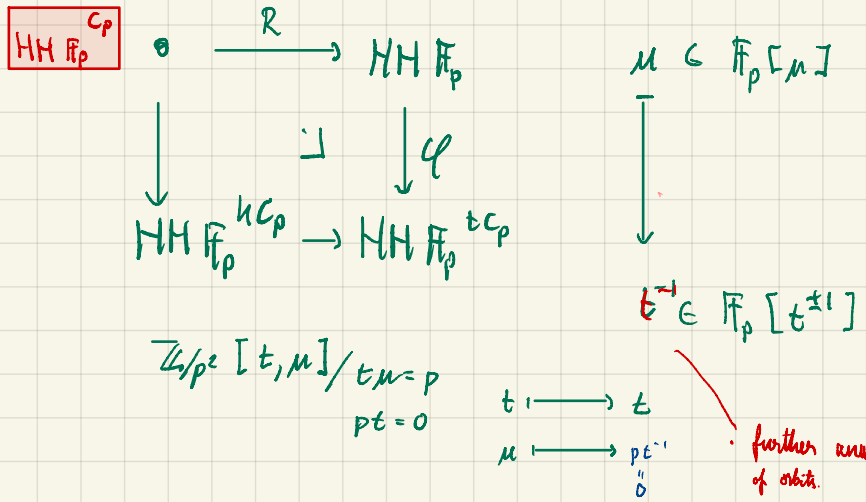 HH 𝔽_p^{C_p}
R
HH 𝔽_p
μ ∈ 𝔽_p [μ]
φ
HH 𝔽_p^{hC_p} → HH 𝔽_p^{tC_p}
t^{-1} ∈ 𝔽_p [t^{±1}]
ℤ/p² [t, μ] / tμ = p
pt = 0
t ↦ t
μ ↦ pt^{-1}
"
0
further
of orbits.